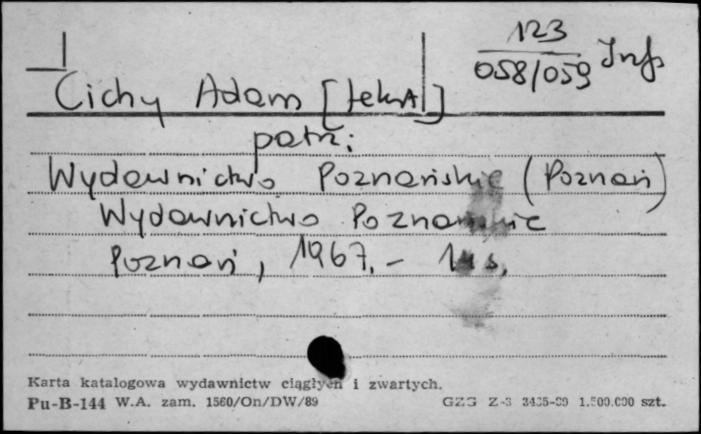 123
058/059 Inf
Cichy Adam [tekst]
patrz:
Wydawnictwo Poznańskie (Poznań)
Wydawnictwo Poznańskie
Poznań, 1967. – s.
Karta katalogowa wydawnictw ciągłych i zwartych.
Pu-B-144 W.A. zam. 1560/On/DW/89 GZG Z-3 1.500.000 szt.